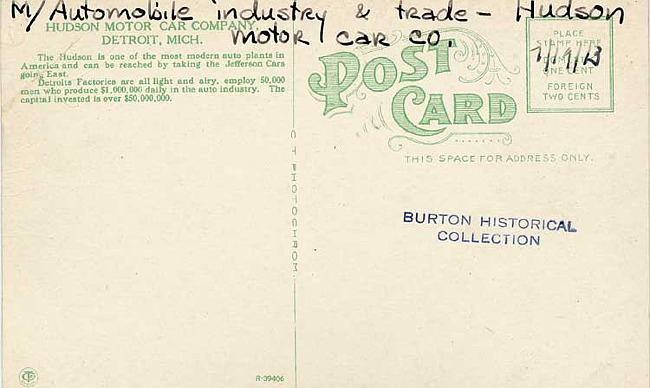 M/Automobile industry & trade - Hudson
Motor car co.
HUDSON MOTOR CAR COMPANY
DETROIT, MICH.
The Hudson is one of the most modern auto plants in
America and can be reached by taking the Jefferson Cars
going East.
Detroits Factories are all light and airy, employ 50,000
men who produce $1,000,000 daily in the auto industry. The
capital invested is over $50,000,000.
POST
CARD
PLACE
STAMP HERE
ONE CENT
FOREIGN
TWO CENTS
THIS SPACE FOR ADDRESS ONLY.
BURTON HISTORICAL
COLLECTION
R-39406